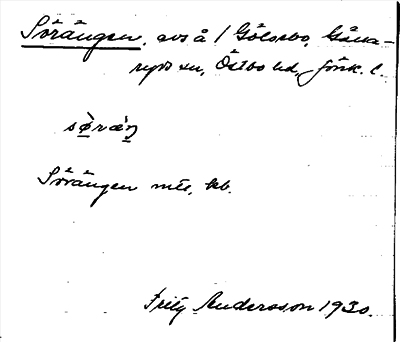 Sörängen, avs å / Gölsbo, Gåna-
ryds sn, Östbo hd, Jönk. l.
sø̀ræ̀ŋ
Sörängen mtl, kb.
Fritz Andersson 1930.